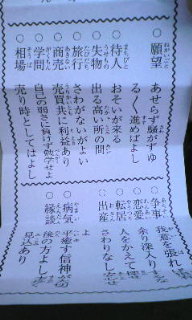 ○願望 あせらず騒がずゆ
るく進めばよし
○待人 おそいが来る
○失物 出る高い所の間
○旅行 さわがないがよい
○商売 売買共に利益あり
○学問 自己の弱さに負けず勉学せよ
○相場 売り時にしてはよし
○争事
我意を張れ
○恋愛 余り深入り
○転居 人をかえて
○出産 さわりなし
よ
○病気 平癒す信神
○縁談 後の方よし
見込あり